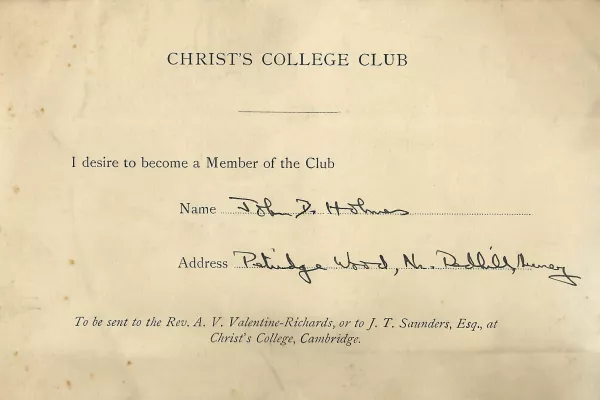 CHRIST'S COLLEGE CLUB
I desire to become a Member of the Club
Name John D. Holmes
Address Petridge Wood, Nr. Redhill, Surrey
To be sent to the Rev. A. V. Valentine-Richards, or to J. T. Saunders, Esq., at
Christ's College, Cambridge.